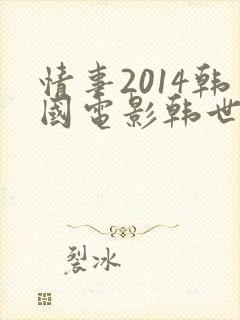 情事2014韩
國電影韩世
裂冰